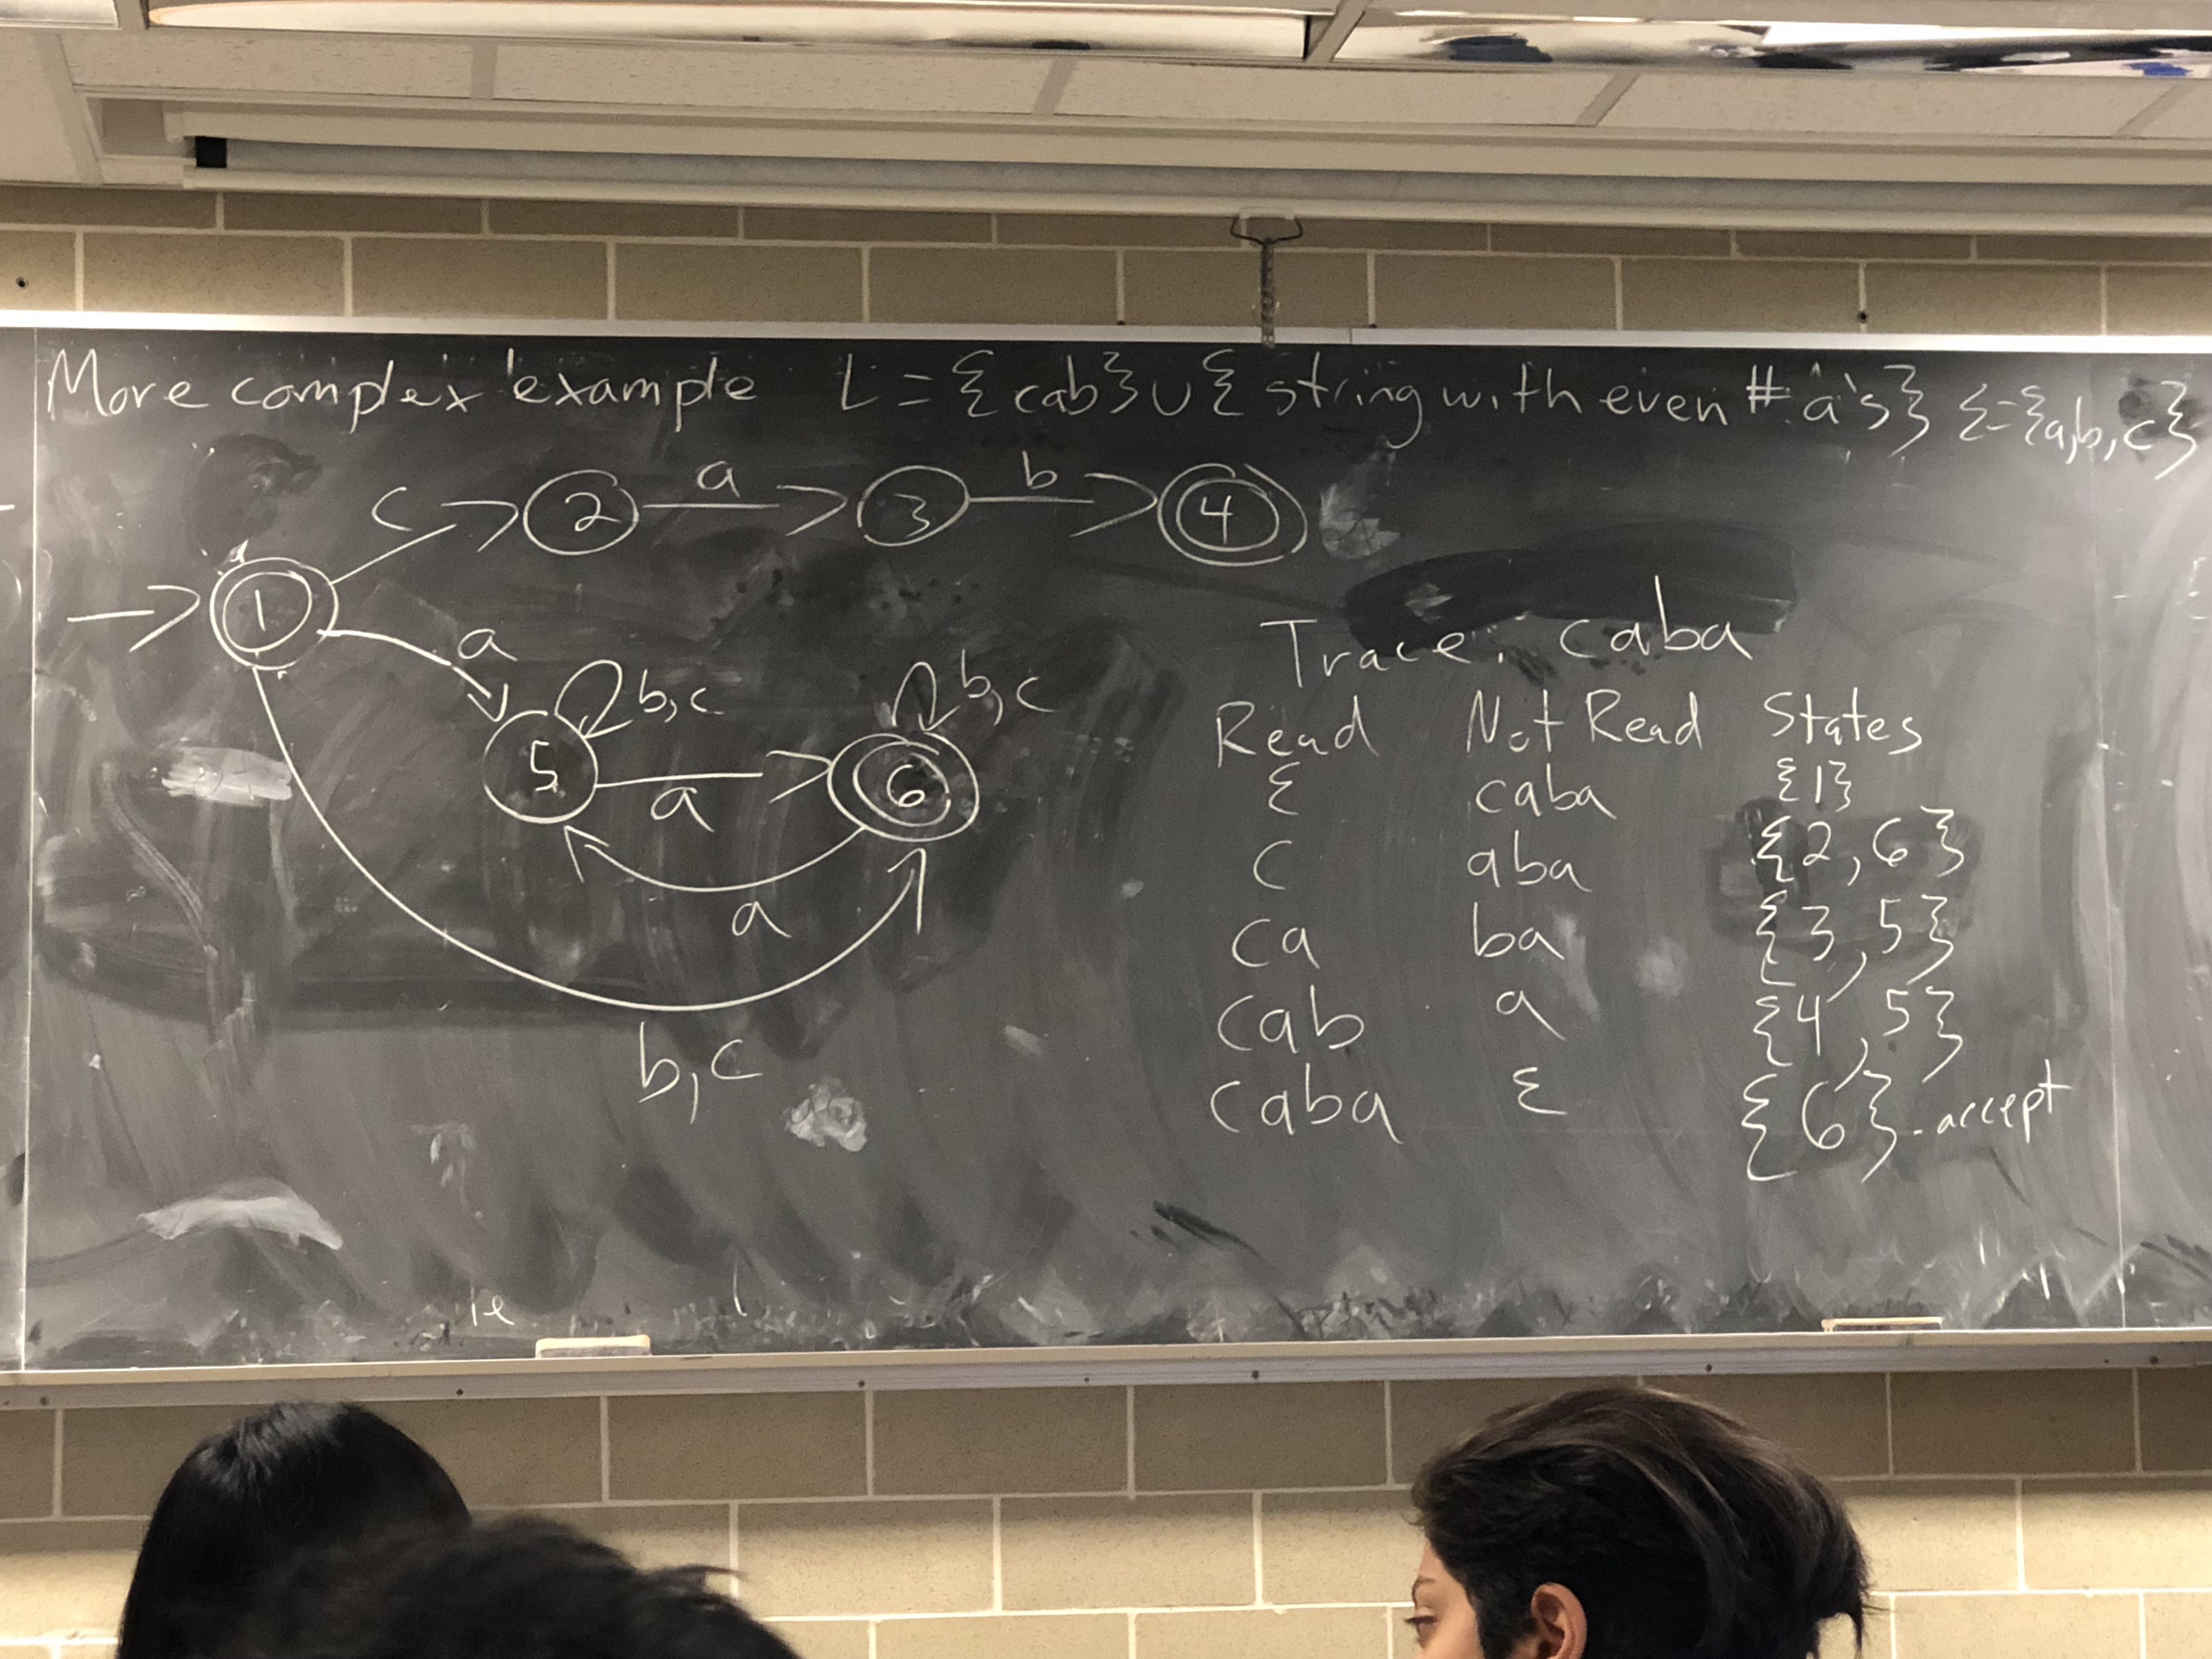 More complex example L = {cab} ∪ {string with even # a's} Σ={a,b,c}
c
2
a
3
b
4
1
a
b,c
b,c
5
a
6
a
b,c
Trace: caba
Read Not Read States
ε caba {1}
c aba {2,6}
ca ba {3,5}
cab a {4,5}
caba ε {6} - accept